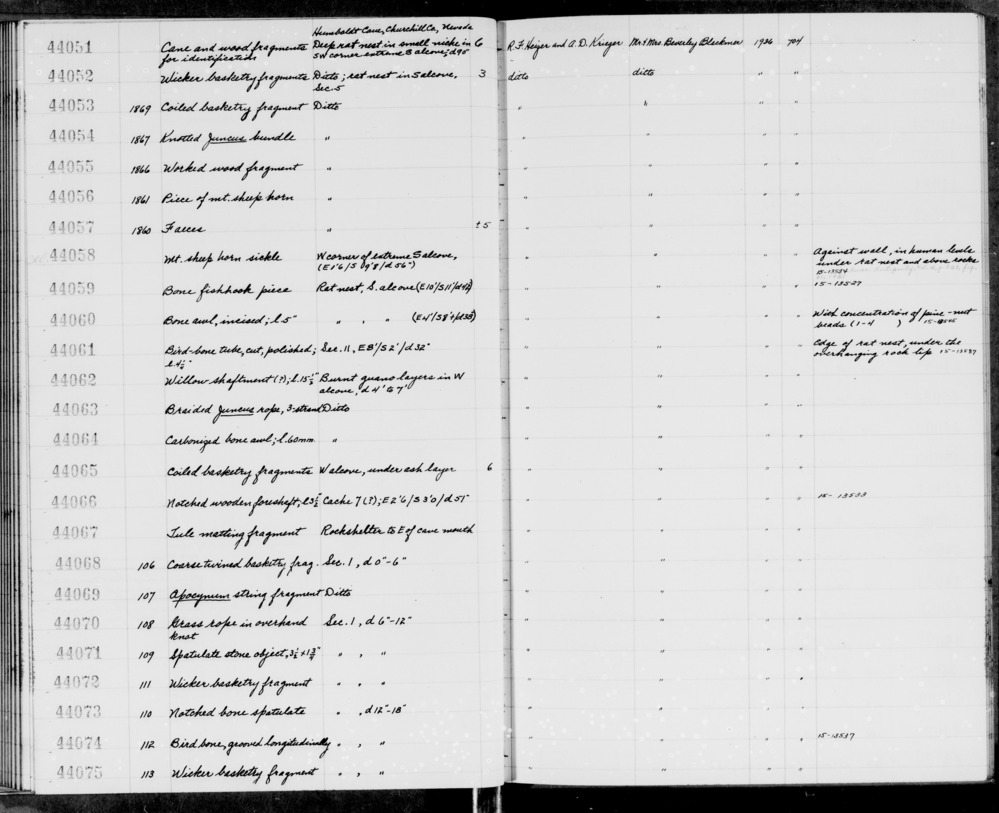 Humboldt Cave, Churchill Co, Nevada
44051 Cane and wood fragments Deep rat nest in small niche in 6 R.F. Heizer and A.D. Krieger Mr + Mrs Beverley Blackmer 1936 704
for identification SW corner extreme S alcove; d 95"
44052 Wicker basketry fragments Ditto; rat nest in S alcove, 3 ditto ditto " "
Sec. 5
44053 1869 Coiled basketry fragment Ditto " " " "
44054 1867 Knotted Juncus bundle " " " " "
44055 1866 Worked wood fragment " " " " "
44056 1861 Piece of mt. sheep horn " " " " "
44057 1860 Faeces " ±5 " " " "
44058 Mt. sheep horn sickle W corner of extreme S alcove, " " " " Against wall, in human levels
(E1'6/S 9'8/d 56") under rat nest and above rocks
15-13534
44059 Bone fishhook piece Rat nest, S. alcove (E10'/S11'/d42") " " " " 15-13527
44060 Bone awl, incised; l. 5" " , " , " (E4'/S8'6/d35") " " " " With concentration of pine-nut
beads (1-4 )
44061 Bird-bone tube, cut, polished; Sec. 11, E8'/S2'/d32" " " " " Edge of rat nest, under the
l. 4½" overhanging rock lip 15-13537
44062 Willow shaftment (?); l. 15½" Burnt guano layers in W " " " "
alcove, d 4' to 7'
44063 Braided Juncus rope, 3-strand Ditto " " " "
44064 Carbonized bone awl; l. 60mm " " " " "
44065 Coiled basketry fragments W alcove, under ash layer 6 " " " "
44066 Notched wooden foreshaft, l 3½" Cache 7 (?); E2'6/S3'0/d 51" " " " " 15-13533
44067 Tule matting fragment Rockshelter to E of cave mouth " " " "
44068 106 Coarse twined basketry frag. Sec. 1, d 0"-6" " " " "
44069 107 Apocynum string fragment Ditto " " " "
44070 108 Grass rope in overhand Sec. 1, d 6"-12" " " " "
knot
44071 109 Spatulate stone object, 3½ x 1¾" " , " , " " " " "
44072 111 Wicker basketry fragment " , " , " " " " "
44073 110 Notched bone spatulate " , d 12"-18" " " " "
44074 112 Bird bone, grooved longitudinally " , " , " " " " " 15-13537
44075 113 Wicker basketry fragment " , " , " " " " "